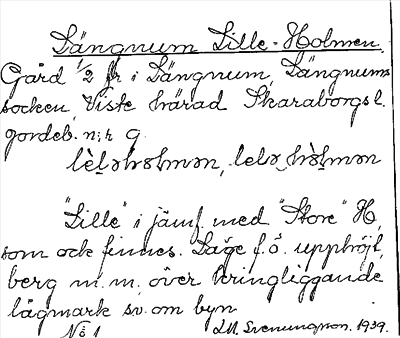 Längnum Lille-Holmen.
Gård 1/2 fr i Längnum, Längnums
socken, Viste härad Skaraborgs l.
jordeb. n:r 9.
lèləhɷlmən, lelə hɷ̀lmən
"Lille" i jämf. med "Store" H,
som ock finnes. Läge f.ö. upphöjt,
berg m.m. över kringliggande
lågmark sv. om byn
No 1 1939.